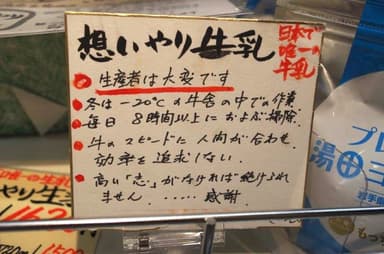 想いやり生乳
日本で
唯一の
生乳
生産者は大変です
冬は-20℃の牛舎の中での作業
毎日 8時間以上におよぶ掃除.
牛のスピードに人間が合わせ
効率を追求しない.
高い「志」がなければ続けられ
ません ……感謝.
プレ
湯田